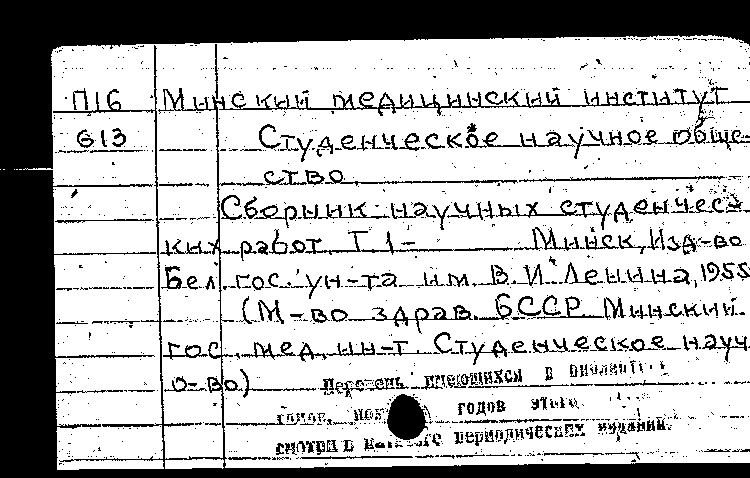 П16 Минский медицинский институт
613 Студенческое научное обще-
ство.
Сборник научных студенчес-
ких работ. Т. 1- Минск, Изд-во
Бел. гос. ун-та им. В. И. Ленина, 1955
(М-во здрав. БССР. Минский
гос. мед. ин-т. Студенческое науч
о-во)
Перечень имеющихся в библиот
годов этого
смотри в каталоге периодических изданий.